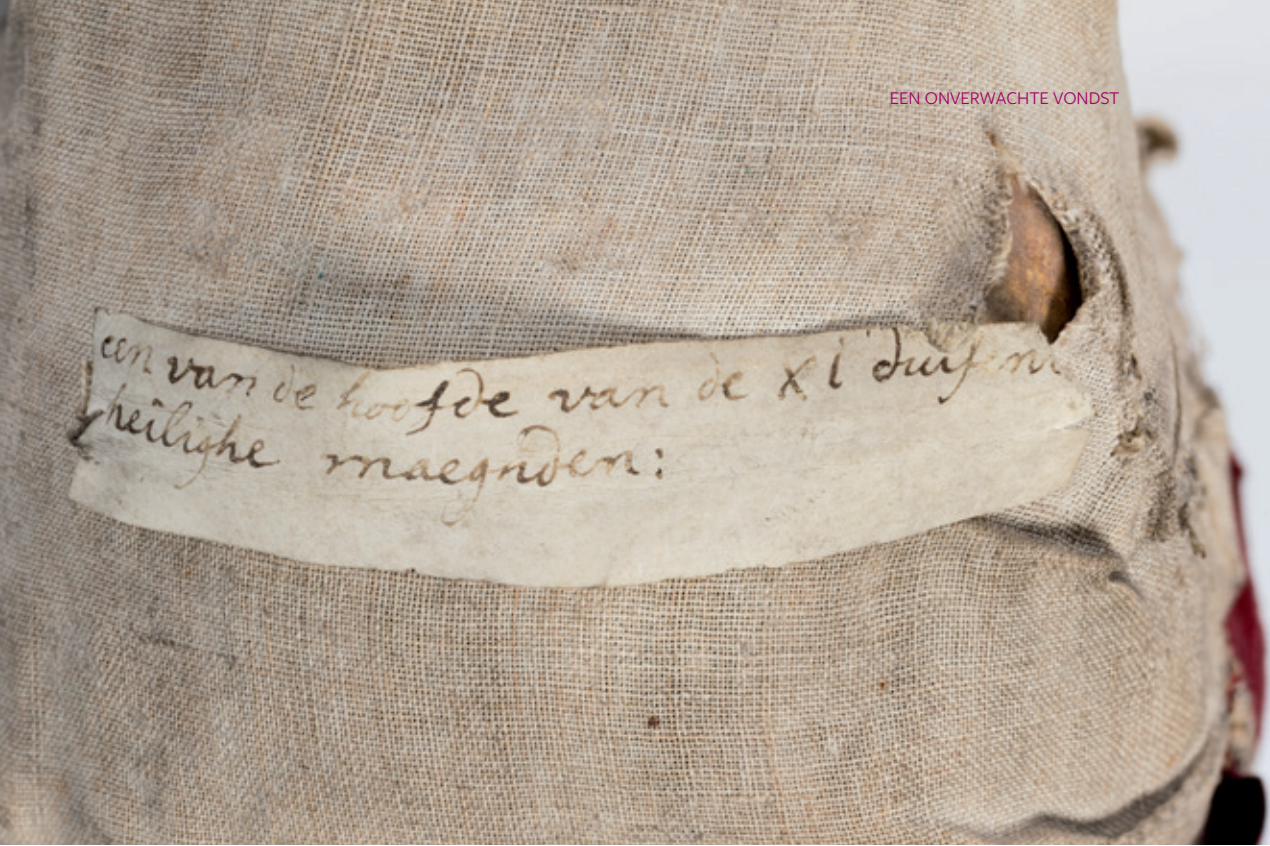 EEN ONVERWACHTE VONDST
een van de hoofde van de XI duisent
heilighe maegnden: